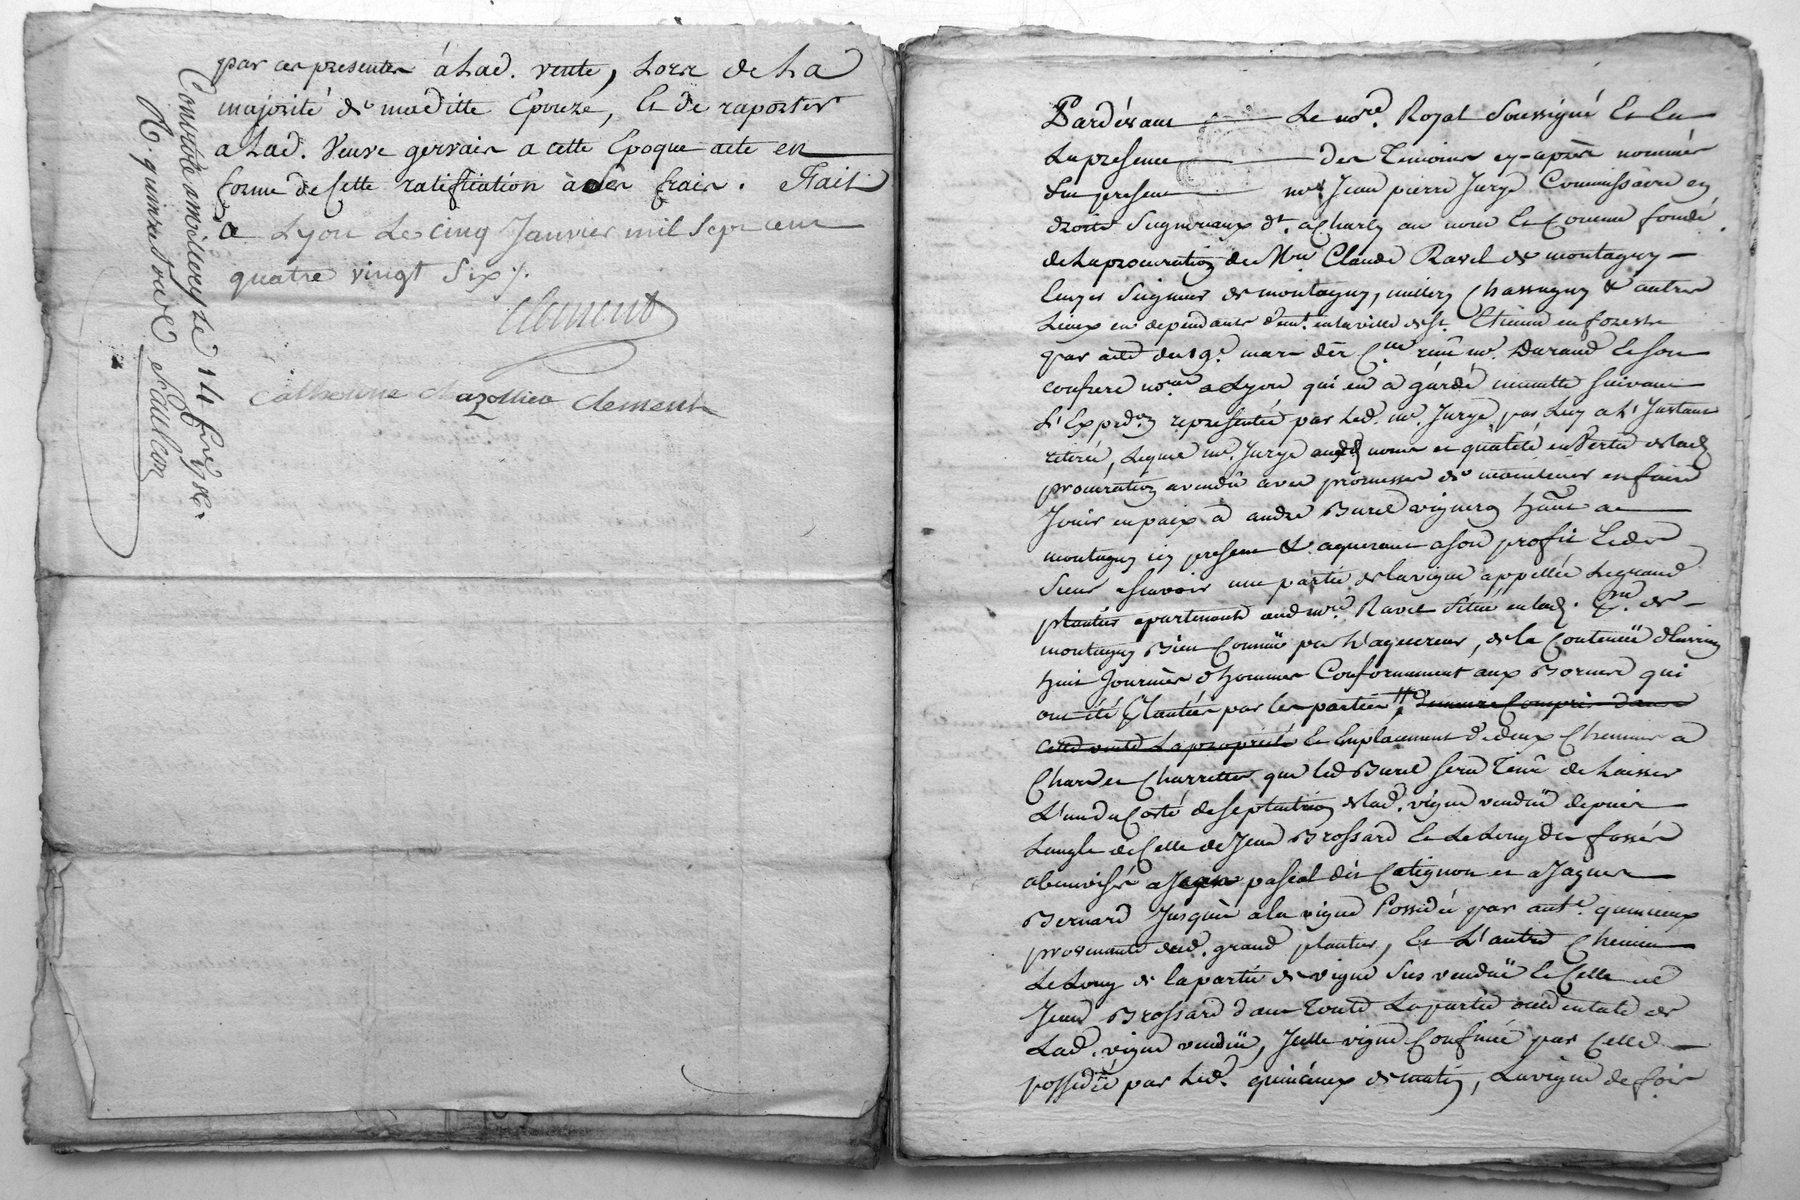 par ces presentes á Lad. vente, Lors de La
majorité de maditte Epouze, Et de raporter
a Lad. Veuve gervais a cette Epoque acte en
forme de Cette ratiffication à ses frais. Fait
a Lyon Le cinq Janvier mil Sept cent
quatre vingt Six ./.
Clement
Catherine Clement
Controllé a Le 14 fev
R. quinze Sous
Pardevant Le nore. Royal Soussigné Et En
La presence des Temoins cy-après nommés
fut present me. Jean pierre Jurge Commissaire en
droits Seigneuriaux dt. a Charly au nom Et Comme fondé
de La procuration de Mre Claude Ravel de montagny
Seigneur de montagny, millery Chassagny & autres
Lieux en dependants demt. en la ville de St. Etienne en forest
par acte du 19e. mars dèr reçu me. Durand Et son
confrere nores a Lyon qui en a gardé minutte suivant
L'Expedon representée par Led. me. Jurge, par Luy a L'Instant
retirée, Lequel me. Jurge aud nom et qualité en Vertu de lad
procuration a vendu avec promesse de maintenir en faire
Jouir en paix à andré Burel vigneron habt. a
montagny icy present & aquerant a son profit Et des
Siens asavoir une partie de la vigne appellée Le grand
plantier apartenant aud mre Ravel Située en lad. de
montagny Bien Connuë par L'aquereur, de la Contenuë d'Environ
huit Journées d'hommes Conformement aux Bornes qui
ont été Plantées par les parties demeure Compris dans
cette vente La proprieté Et Emplacement de deux Chemins a
Chars et Charrettes que led Burel sera Tenu de Laisser
L'un du Coté de septentrion de lad. vigne venduë depuis
L'angle de Celle de Jean Brossard Et Le Long des fossés
abenevisés a Jean pascal dit Catignon et a Jaques
Bernard Jusqu'à la vigne Possedée par ante. quincieux
provenante dud. grand plantier, Et L'autre Chemin
Le Long de la partie de vigne sus venduë Et Celle de
Jean Brossard dans Toute La partie occidentale de
Lad. vigne venduë, Icelle vigne Confinée par Celle
possedée par Led. quincieux de matin, La vigne de foir